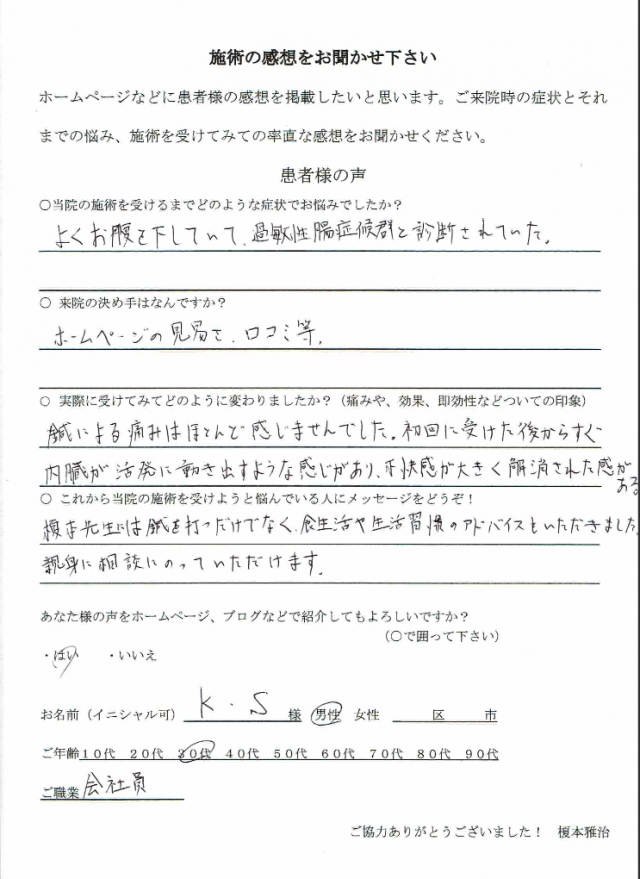 施術の感想をお聞かせ下さい
ホームページなどに患者様の感想を掲載したいと思います。ご来院時の症状とそれ
までの悩み、施術を受けてみての率直な感想をお聞かせください。
患者様の声
○当院の施術を受けるまでどのような症状でお悩みでしたか?
よくお腹を下していて、過敏性腸症候群と診断されていた。
○ 来院の決め手はなんですか?
ホームページの見易さ、口コミ等。
○ 実際に受けてみてどのように変わりましたか?(痛みや、効果、即効性などついての印象)
鍼による痛みはほとんど感じませんでした。初回に受けた後からすぐ
内臓が活発に動き出すような感じがあり、不快感が大きく解消された感が
ある。
○ これから当院の施術を受けようと悩んでいる人にメッセージをどうぞ!
榎本先生には鍼を打つだけでなく、食生活や生活習慣のアドバイスもいただきました。
親身に相談にのっていただけます。
あなた様の声をホームページ、ブログなどで紹介してもよろしいですか?
(○で囲って下さい)
・はい ・いいえ
お名前(イニシャル可) K・S 様 男性 女性 区 市
ご年齢10代 20代 30代 40代 50代 60代 70代 80代 90代
ご職業 会社員
ご協力ありがとうございました! 榎本雅治